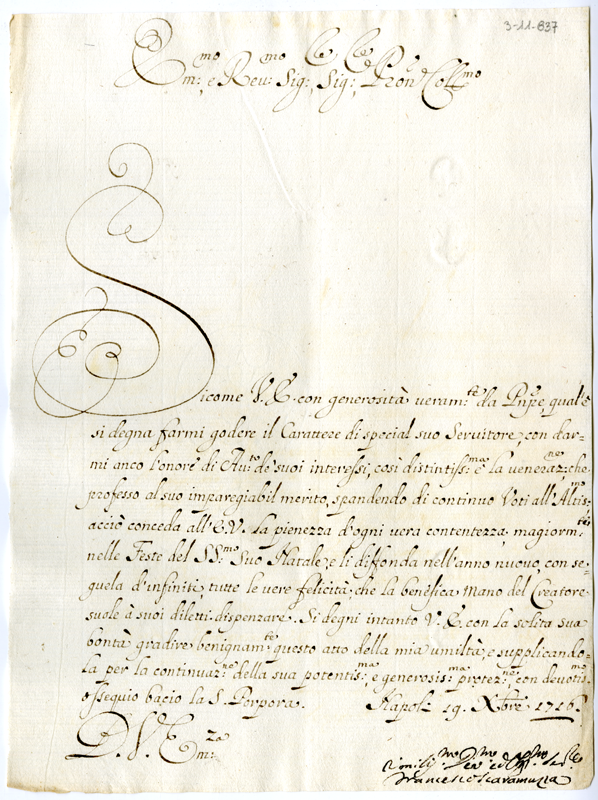 3-11-837
Em:mo e Reu:mo Sig:, Sig:, Pron Coll:mo
Sicome V. E. con generosità veram:te da Pnpe, qual'è
si degna farmi godere il Carattere di special suo Servitore, con dar=
mi anco l'onore di Au:to de' suoi interessi, così distintiss:ma è la veneraz:ne, che
professo al suo impareggiabil merito, spandendo di continuo Voti all'Altis:mo
acciò conceda all'E.V. la pienezza d'ogni vera contentezza, magiorm:te
nelle Feste del SS:mo Suo Natale, e li diffonda nell'anno nuovo, con se=
guela d'infiniti, tutte le vere felicità, che la benefica Mano del Creatore
suole à suoi diletti dispenzare. Si degni intanto V. E. con la solita sua
bontà gradire benignam:te questo atto della mia umiltà, e supplicando=
la per la continuaz:ne della sua potentis:ma e generosis:ma protez:ne, con deuotis:mo
ossequio bacio la S. Porpora. Napoli 19. Xbre 1716.
D. V. Em:za
Francesco Scaramuzza